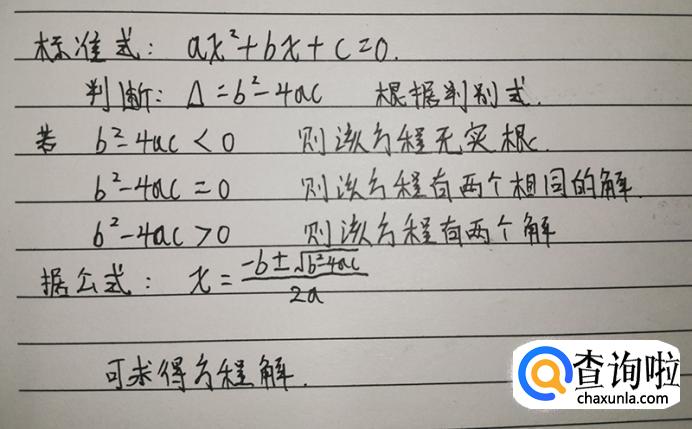 标准式: ax²+bx+c=0.
判断: Δ=b²-4ac 根据判别式.
若 b²-4ac<0 则该方程无实根.
b²-4ac=0 则该方程有两个相同的解.
b²-4ac>0 则该方程有两个解
据公式: x=\frac{-b±\sqrt{b²-4ac}}{2a}
可求得方程解.
查询啦
chaxunla.com